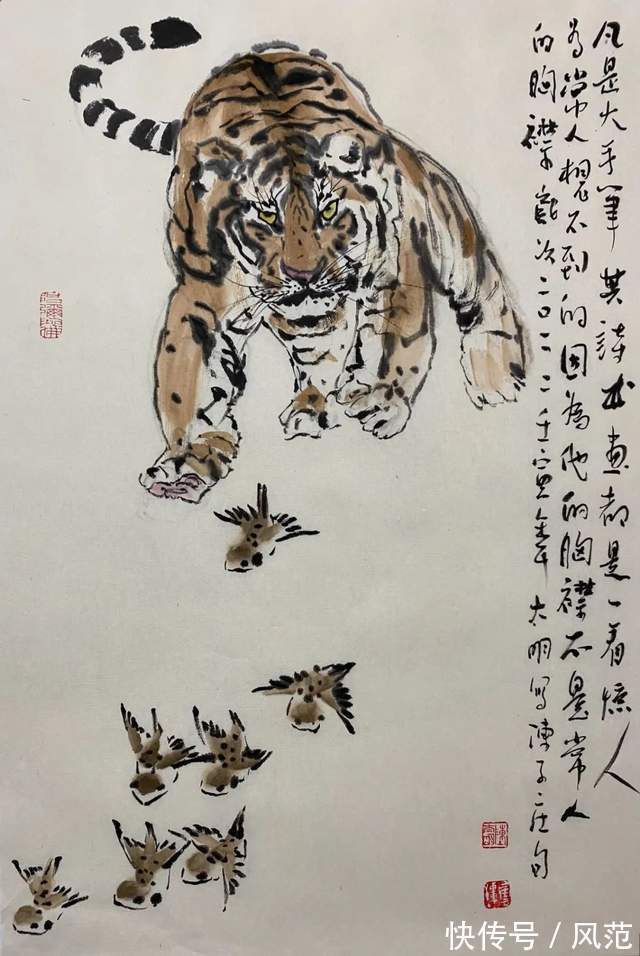 凡是大手笔其詩书画都是一着惊人
為常人想不到的因為他的胸襟不是常人
的胸襟歲次二〇二二壬寅年太明写陳子庄句
快传号/风范